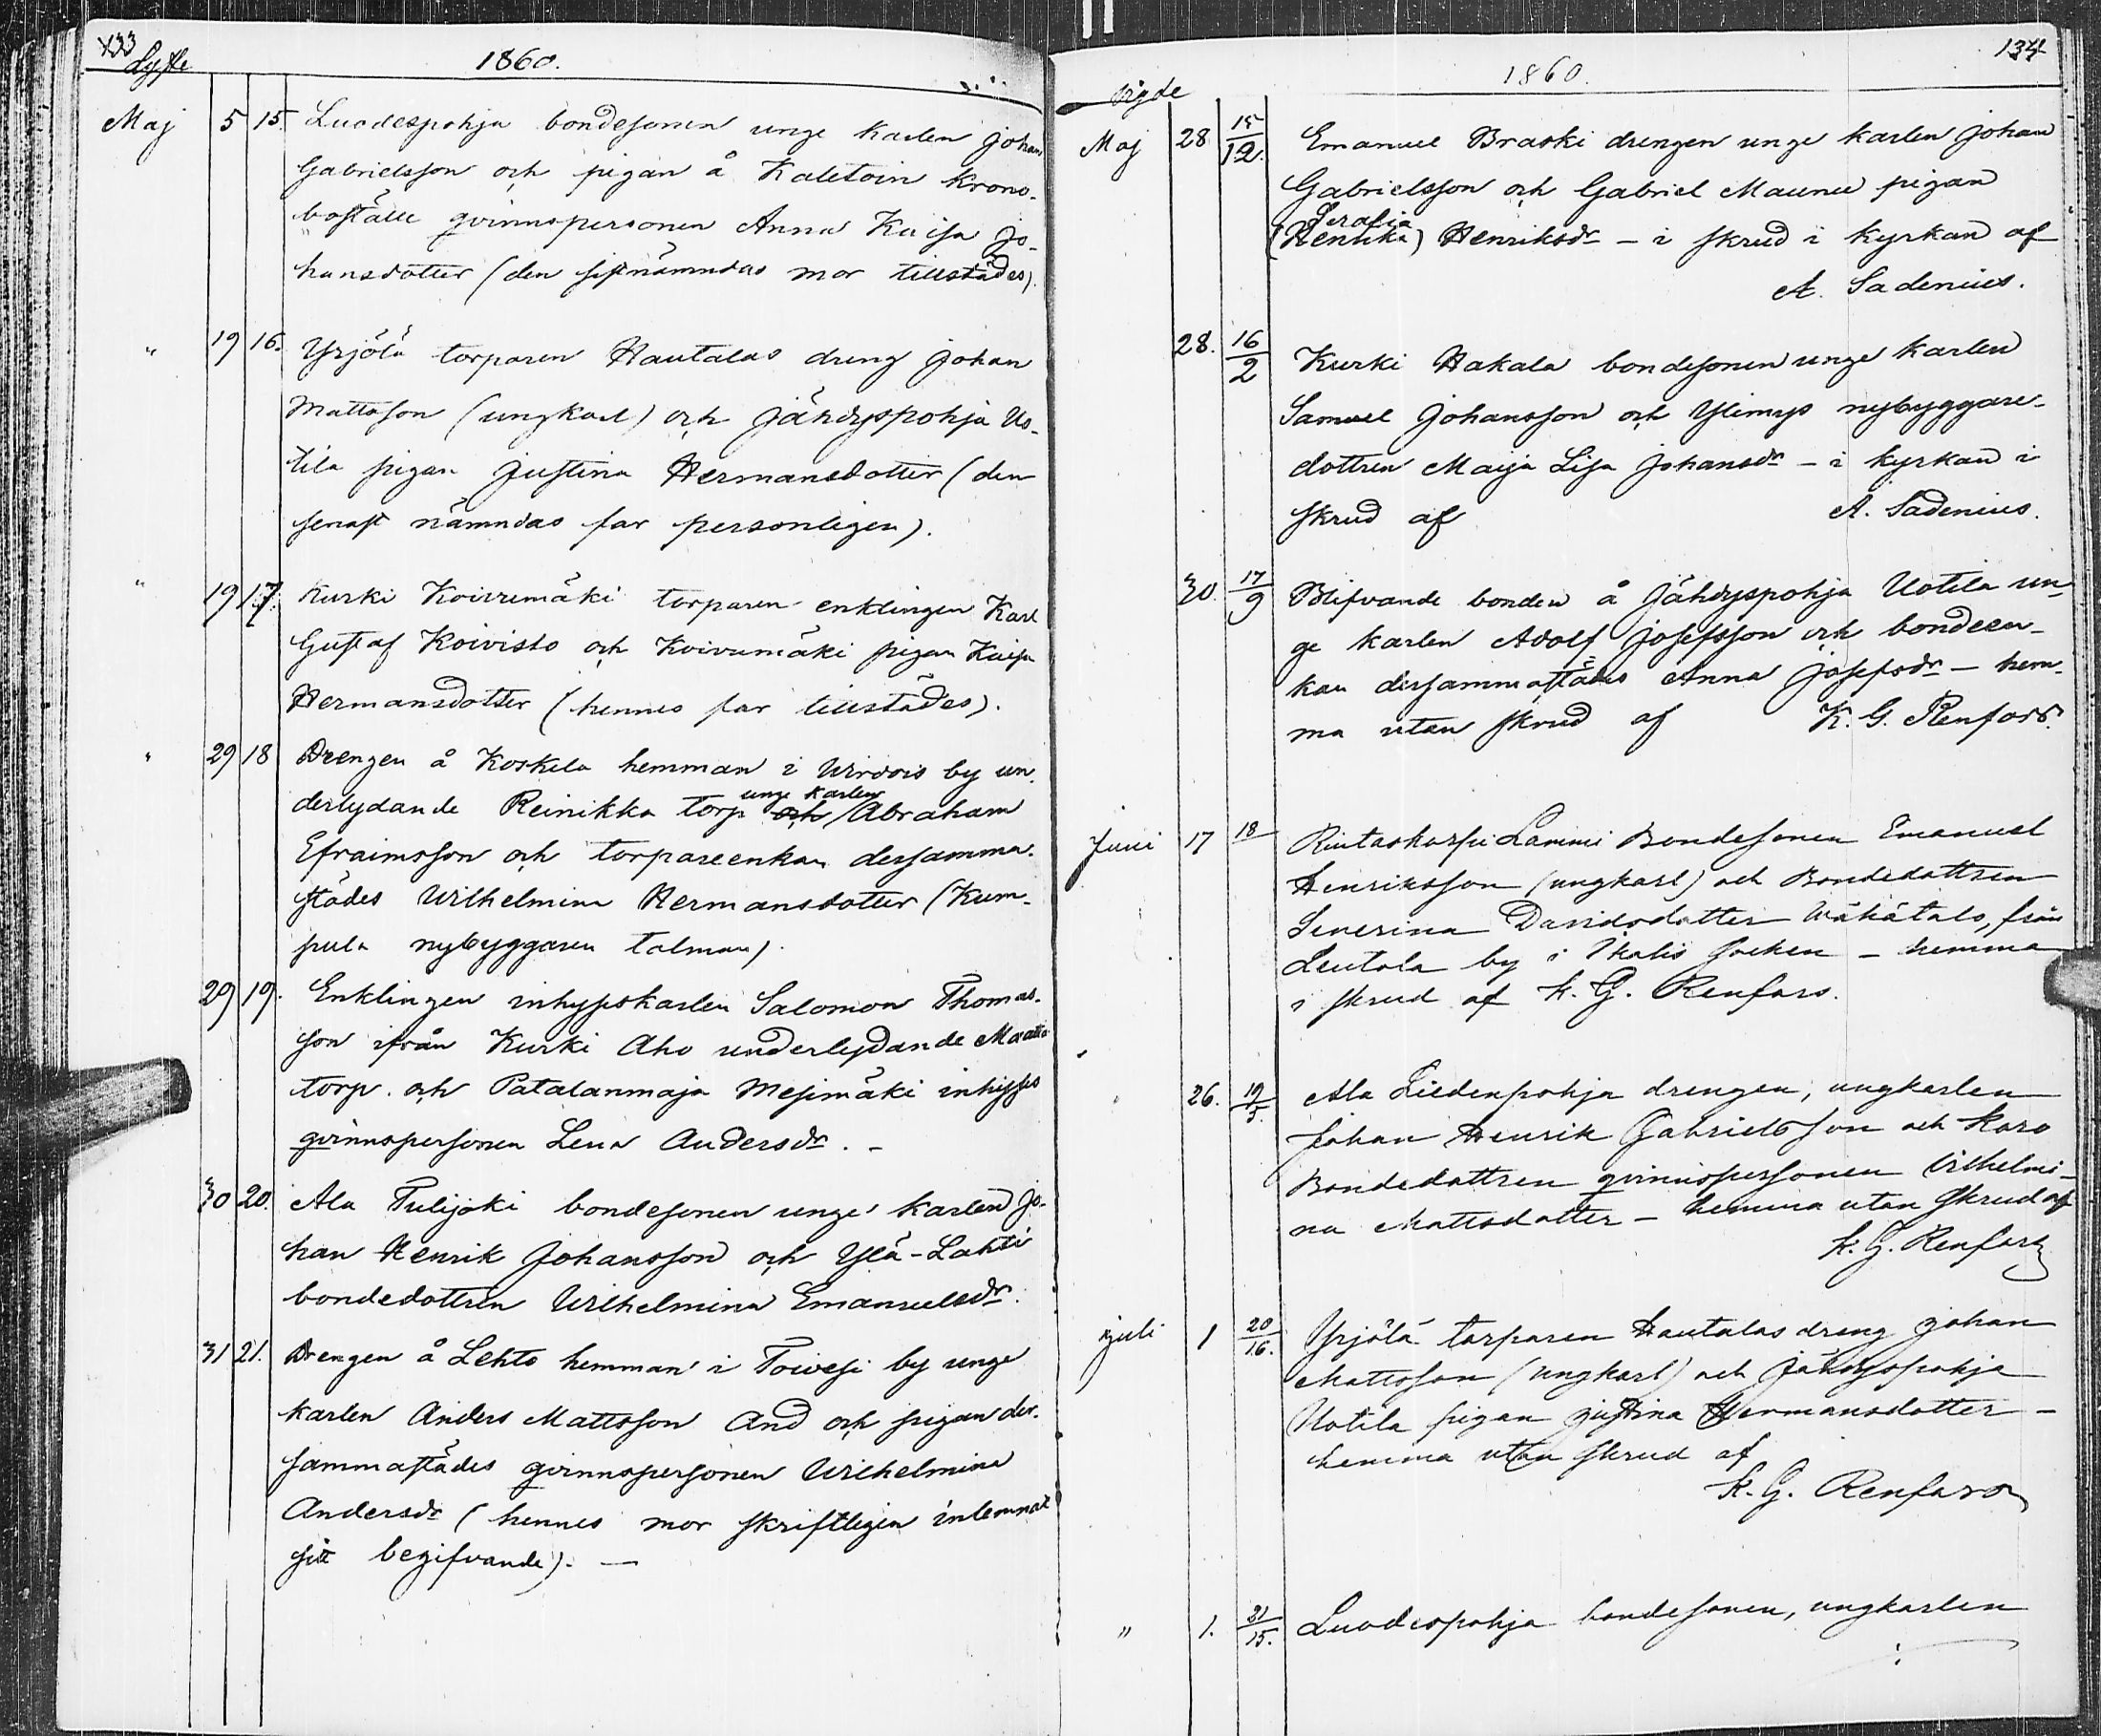 133
Lyste
1860.
Maj 5 15. Luodespohja bondesonen unge karlen Johan
Gabrielsson och pigan å Kaletoin krono-
boställe qvinnspersonen Anna Kaisa Jo-
hansdotter (den sistnämndas mor tillstädes).
" 19 16. Yrjölä torparen Hautalas dreng Johan
Mattsson (ungkarl) och Jähdyspohja Uo-
tila pigan Justina Hermansdotter (den
senast nämndas far personligen).
" 19 17. Kurki Koivumäki torparen enklingen Karl
Gustaf Koivisto och Koivumäki pigan Kaisa
Hermansdotter (hennes far tillstädes).
" 29 18 Drengen å Koskela hemman i Wirdois by un-
derlydande Reinikka torp och unge karlen Abraham
Efraimsson och torpareenkan dersamma-
städes Wilhelmina Hermansdotter (Kum-
pula nybyggaren talman).
29 19. Enklingen inhyseskarlen Salomon Thomas-
son ifrån Kurki Aho underlydande
torp och Patalanmaja Mesimäki inhyses
qvinnspersonen Lena Andersdr. –
30 20. Ala Tulijoki bondesonen unge karlen Jo-
han Henrik Johansson och Ylä-Lahti
bondedottren Wilhelmina Emanuelsdr.
31 21. Drengen å Lehto hemman i Toivesi by unge
karlen Anders Mattsson And och pigan der-
sammastädes qvinnspersonen Wilhelmina
Andersdr (hennes mor skriftligen inlemnat
sitt begifvande). –
134
1860.
Vigde
Maj 28 15/12. Emanuel Braski drengen unge karlen Johan
Gabrielsson och Gabriel Maunu pigan
Serafia
(Henrika) Henriksdr – i skrud i kyrkan af
A. Sadenius.
28. 16/2 Kurki Hakala bondesonen unge karlen
Samuel Johansson och Ylimys nybyggare-
dottren Maija Lisa Johansdr – i kyrkan i
skrud af A. Sadenius.
30. 17/9 Blifvande bonden å Jähdyspohja Uotila un-
ge karlen Adolf Josefsson och bondeen-
kan dersammastädes Anna Josefsdr – hem-
ma utan skrud af K. G. Renfors.
Juni 17 18 Rintaskorpi Lammi Bondesonen Emanuel
Henriksson (ungkarl) och Bondedottren
Severina Davidsdotter Wähätalo, från
Leutola by i Ikalis Socken – hemma
i skrud af K. G. Renfors.
26. 19/5. Ala Liedenpohja drengen, ungkarlen
Johan Henrik Gabrielsson och Karo
Bondedottren qvinnspersonen Vilhelmi-
na Mattsdotter – hemma utan skrud af
K. G. Renfors
Juli 1 20/16. Yrjölä torparen Hautalas dreng Johan
Mattsson (ungkarl) och Jähdyspohja
Uotila pigan Justina Hermansdotter –
hemma utan skrud af
K. G. Renfors
" 1. 21/15. Luodespohja bondesonen, ungkarlen